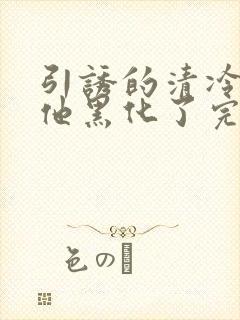 引誘的清冷
他黑化了完
色の